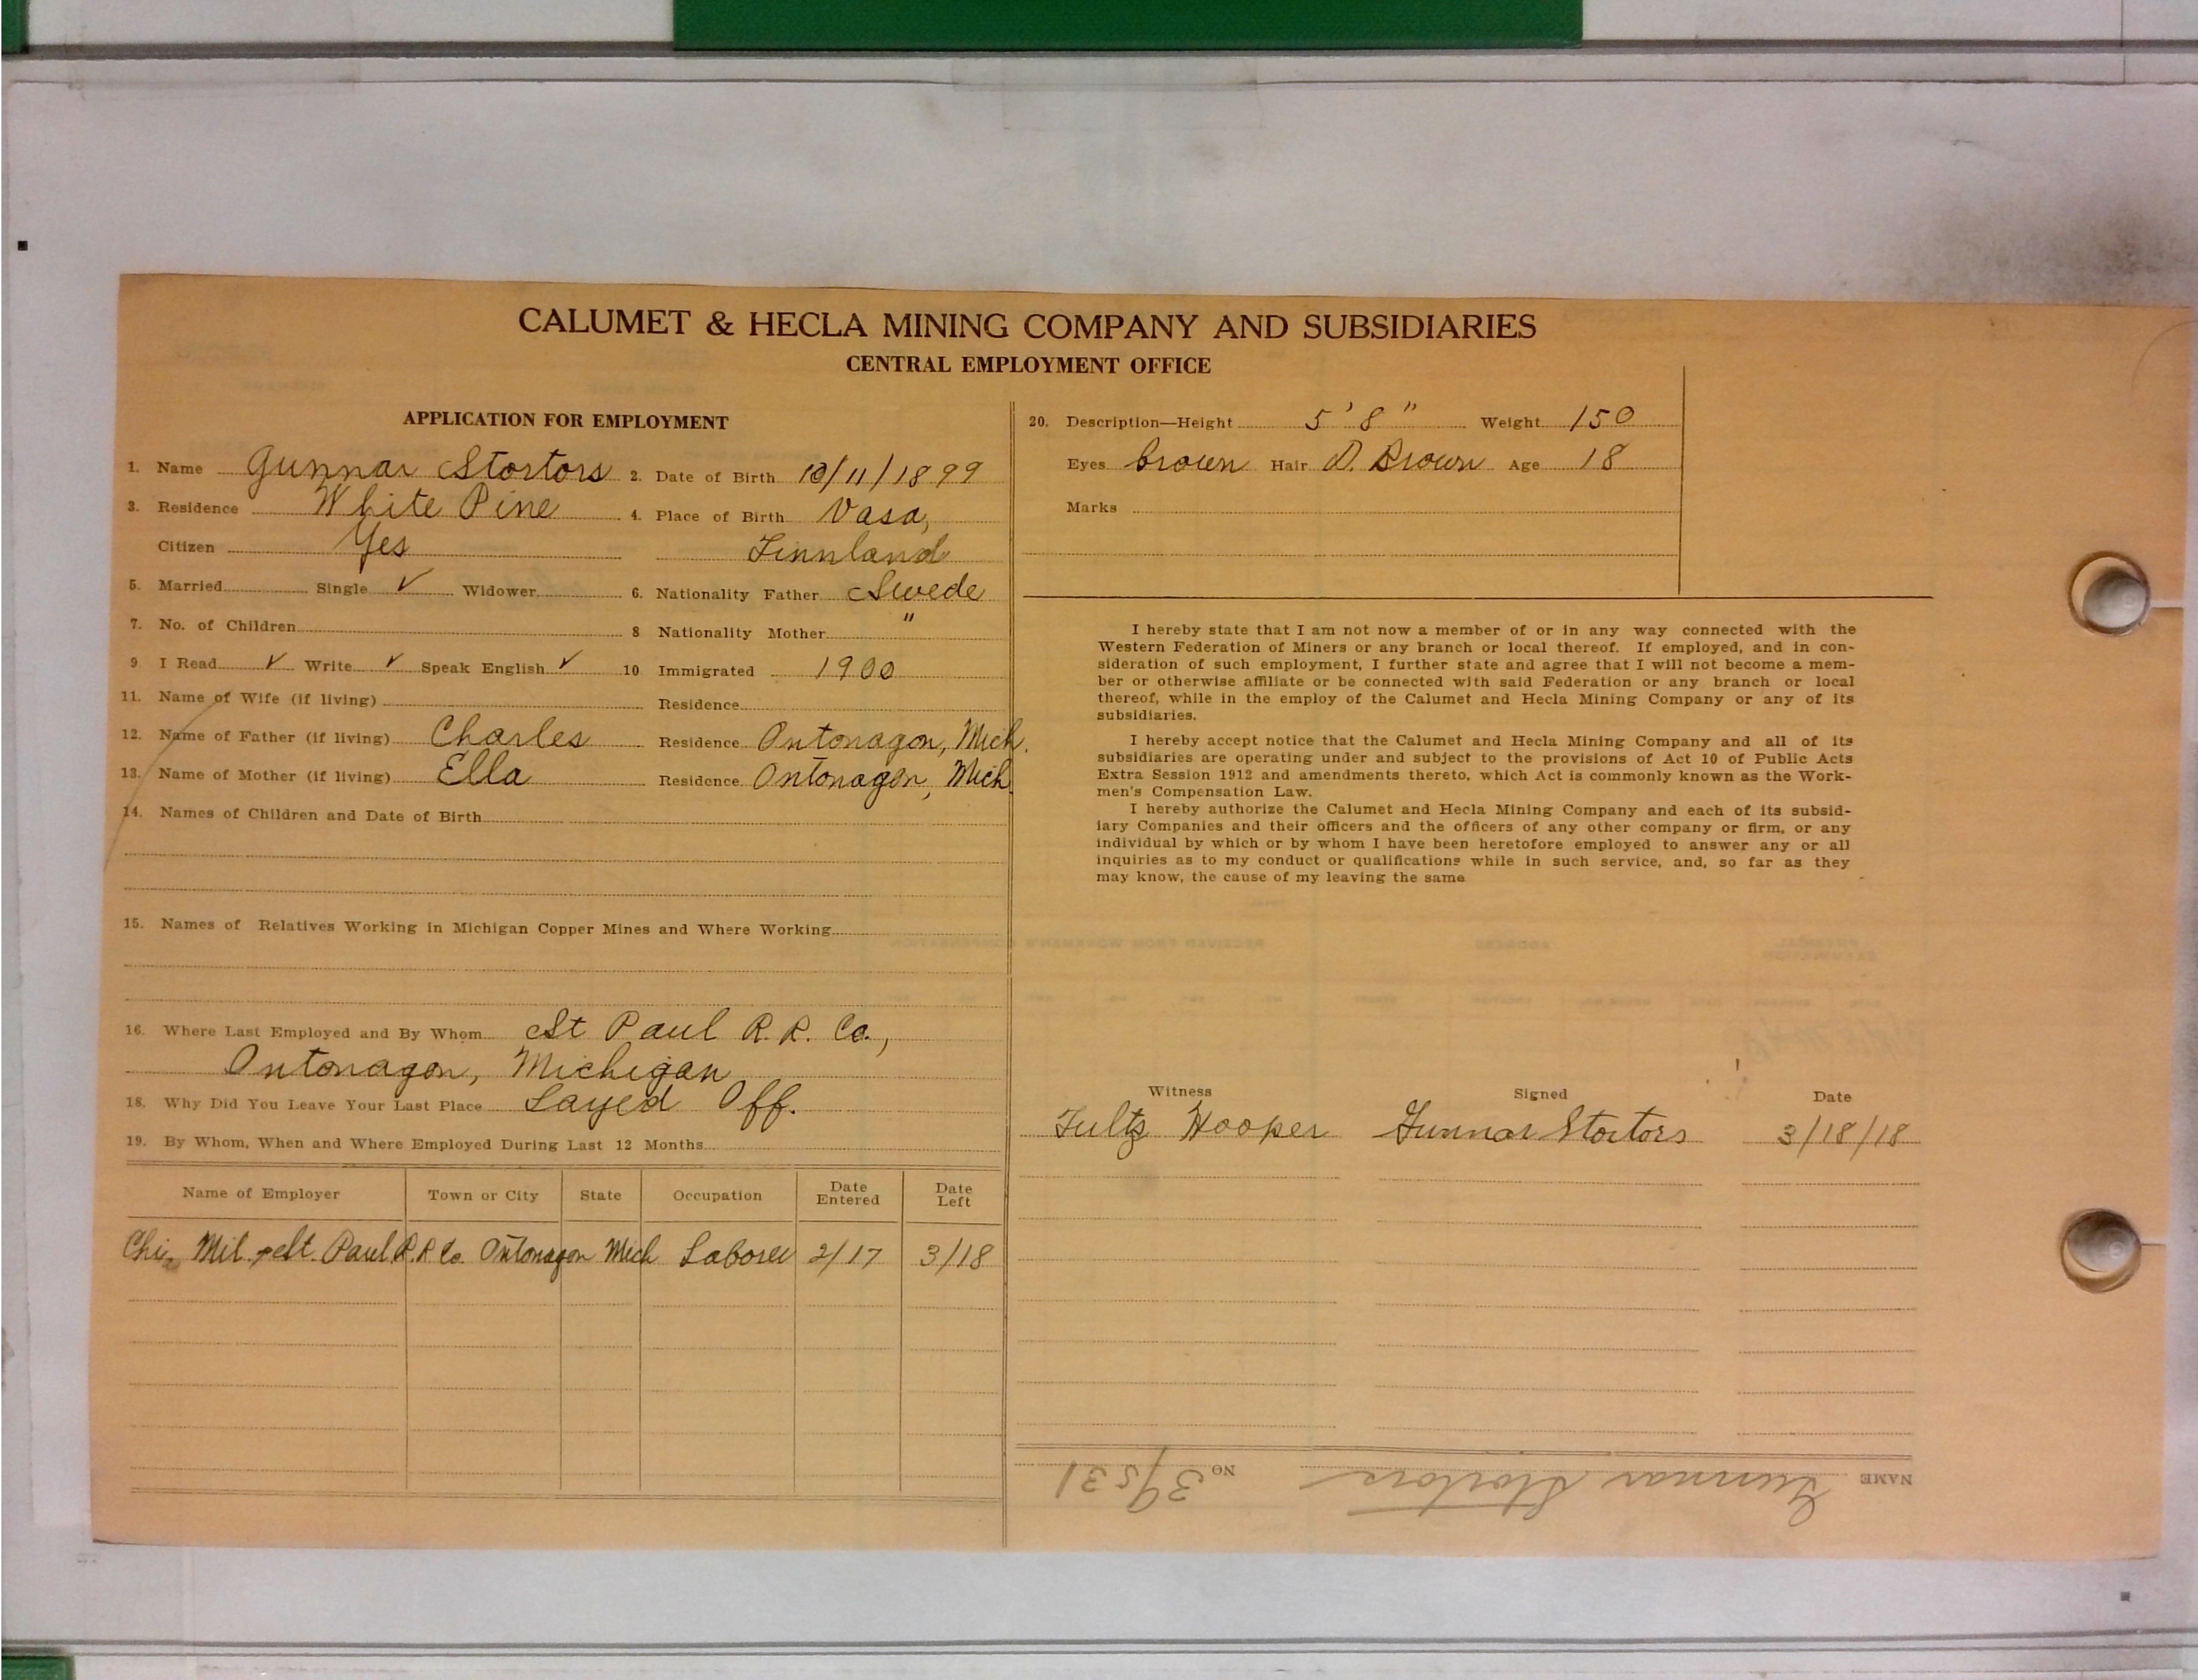 CALUMET & HECLA MINING COMPANY AND SUBSIDIARIES
CENTRAL EMPLOYMENT OFFICE
APPLICATION FOR EMPLOYMENT
1. Name Gunnar Stortors 2. Date of Birth 10/11/1899
3. Residence White Pine 4. Place of Birth Vasa,
Citizen Yes Finnland
5. Married Single ✓ Widower 6. Nationality Father Swede
7. No. of Children 8 Nationality Mother "
9 I Read ✓ Write ✓ Speak English ✓ 10 Immigrated 1900
11. Name of Wife (if living) Residence
12. Name of Father (if living) Charles Residence Ontonagon, Mich.
13. Name of Mother (if living) Ella Residence Ontonagon, Mich
14. Names of Children and Date of Birth
15. Names of Relatives Working in Michigan Copper Mines and Where Working
16. Where Last Employed and By Whom St Paul R. R. Co.,
Ontonagon, Michigan
18. Why Did You Leave Your Last Place Layed Off.
19. By Whom, When and Where Employed During Last 12 Months
Name of Employer Town or City State Occupation Date Entered Date Left
Chi, Mil & St. Paul R.R Co. Ontonagon Mich Laborer 2/17 3/18
20. Description—Height 5' 8" Weight 150
Eyes brown Hair D. Brown Age 18
Marks
I hereby state that I am not now a member of or in any way connected with the
Western Federation of Miners or any branch or local thereof. If employed, and in con-
sideration of such employment, I further state and agree that I will not become a mem-
ber or otherwise affiliate or be connected with said Federation or any branch or local
thereof, while in the employ of the Calumet and Hecla Mining Company or any of its
subsidiaries.
I hereby accept notice that the Calumet and Hecla Mining Company and all of its
subsidiaries are operating under and subject to the provisions of Act 10 of Public Acts
Extra Session 1912 and amendments thereto, which Act is commonly known as the Work-
men's Compensation Law.
I hereby authorize the Calumet and Hecla Mining Company and each of its subsid-
iary Companies and their officers and the officers of any other company or firm, or any
individual by which or by whom I have been heretofore employed to answer any or all
inquiries as to my conduct or qualifications while in such service, and, so far as they
may know, the cause of my leaving the same
Witness Signed Date
Fultz Hooper Gunnar Stortors 3/18/18
NAME Gunnar Stortors NO 39531